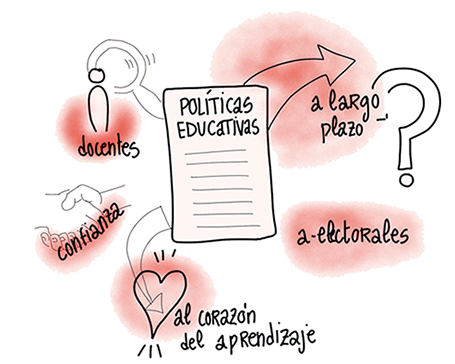 POLÍTICAS
EDUCATIVAS
a largo
plazo
?
docentes
confianza
a-electorales
al corazón
del aprendizaje